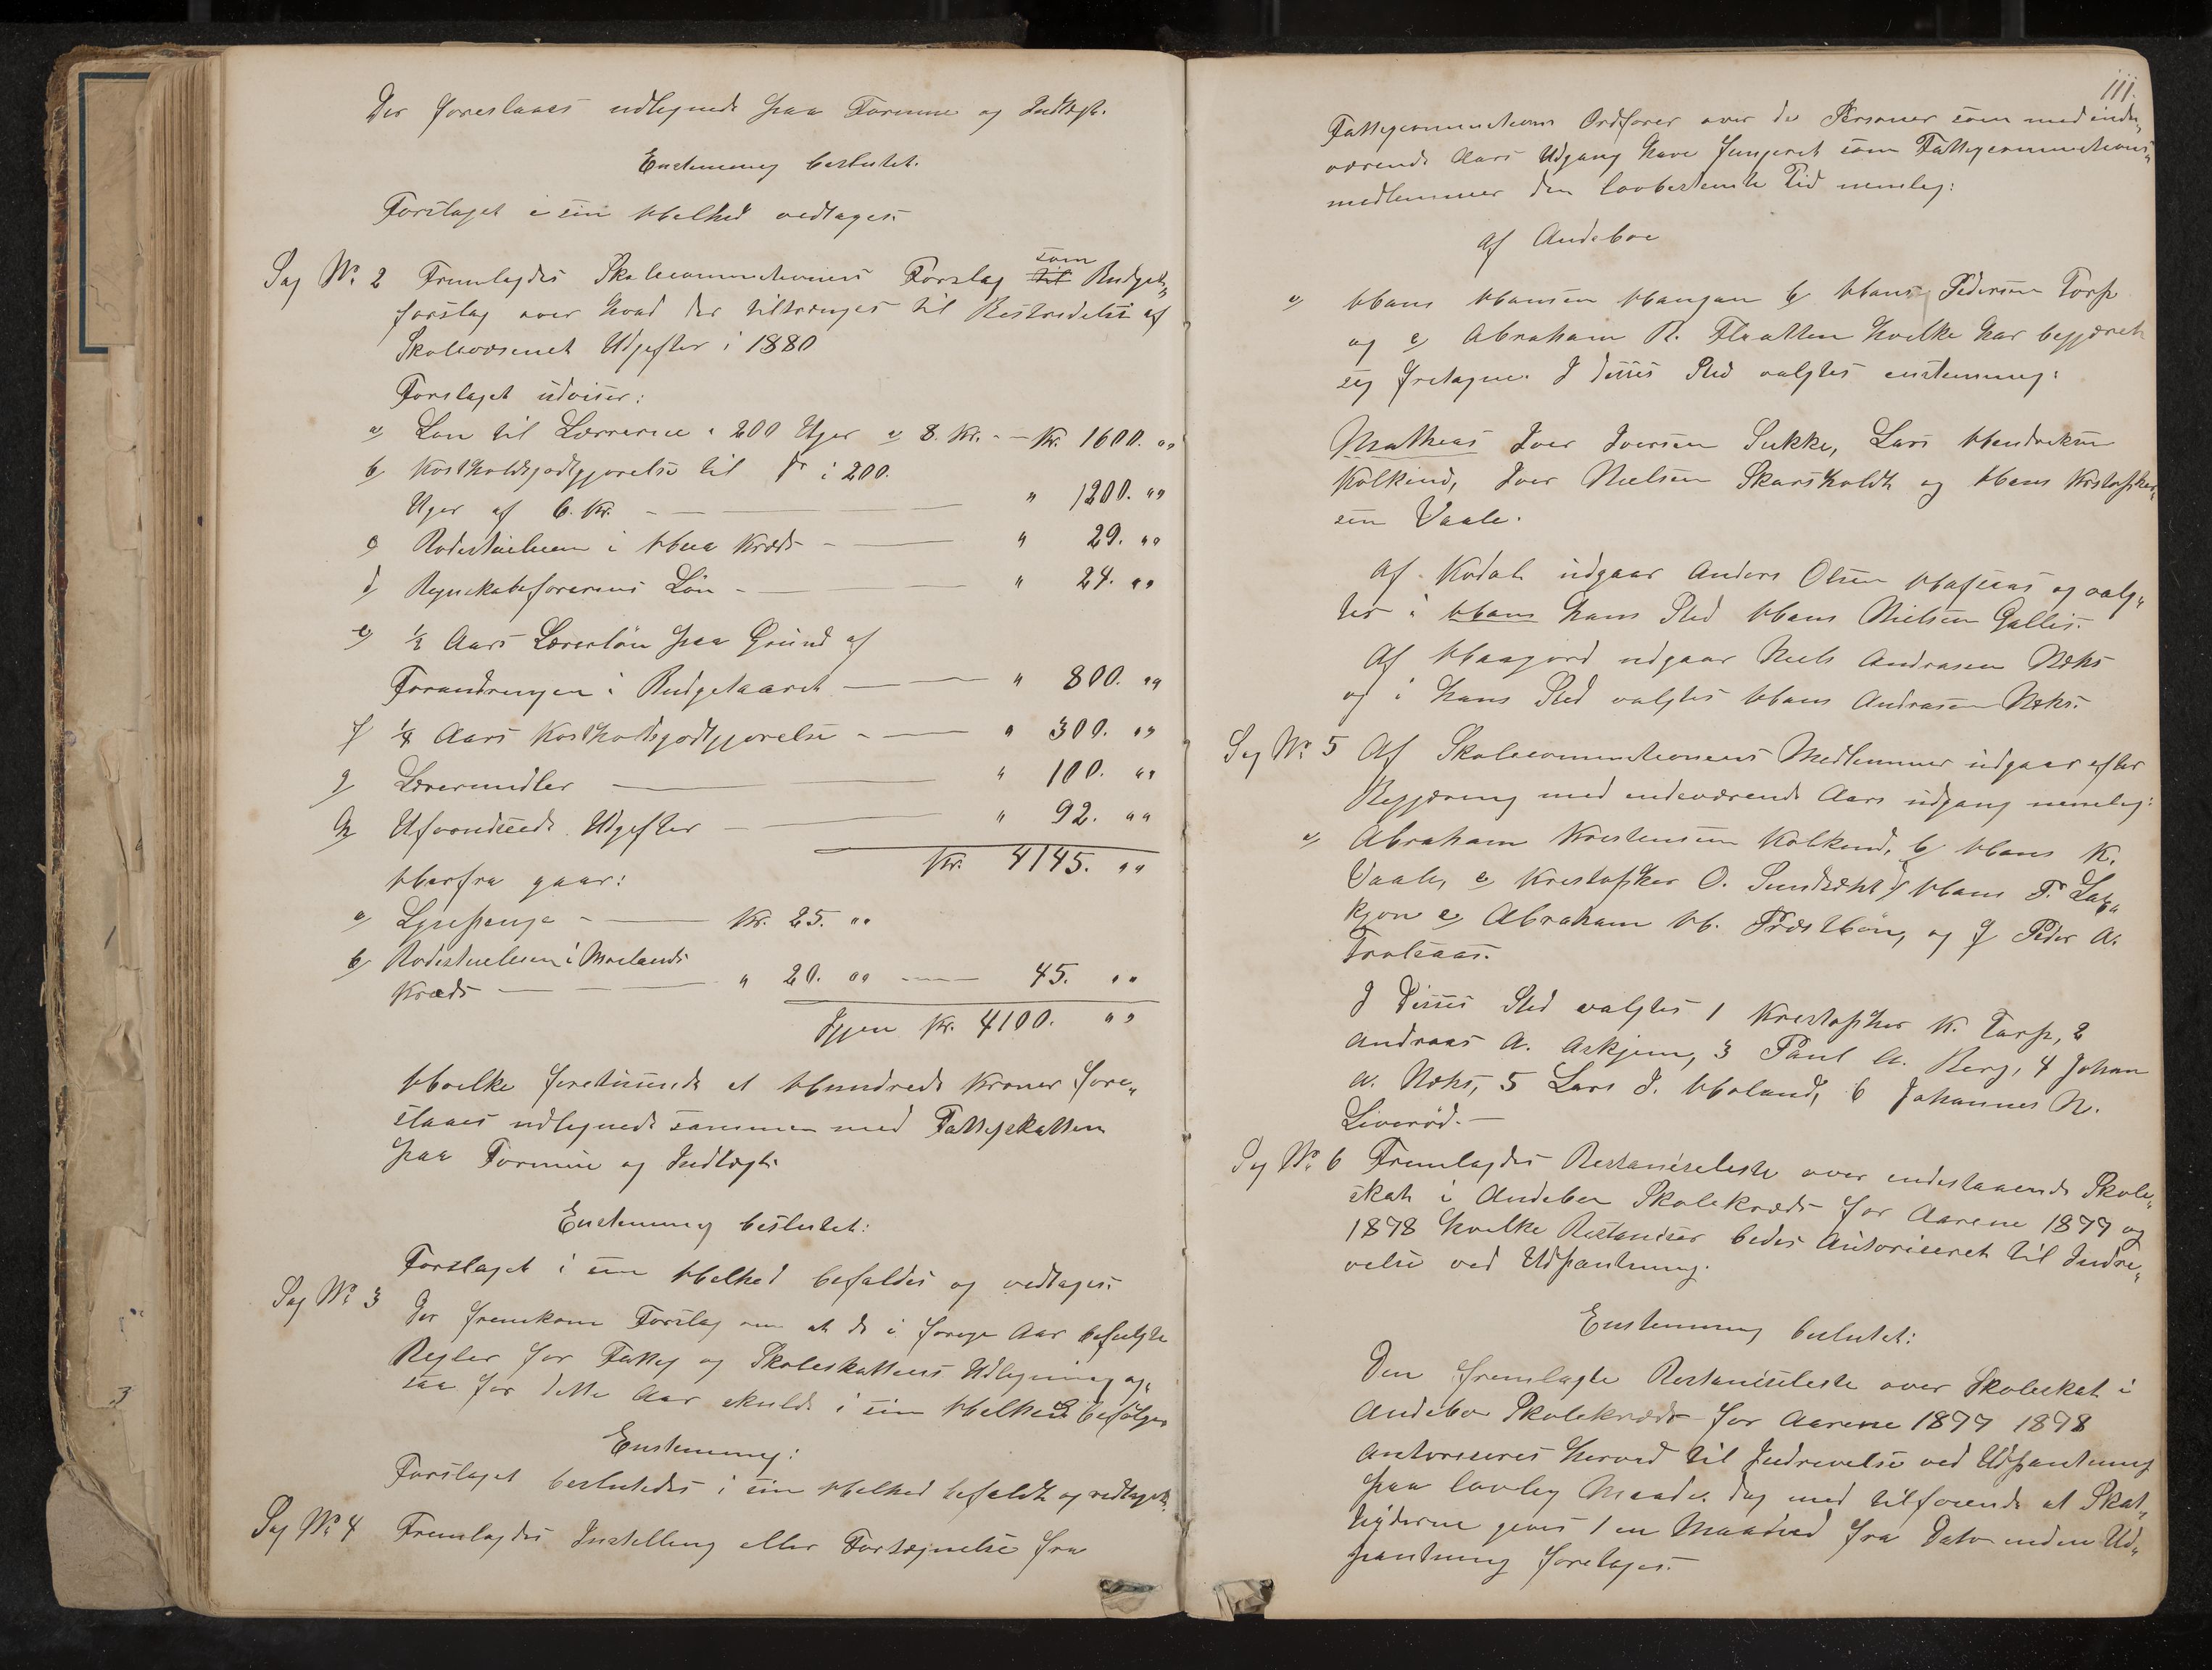 Der foreslaaes udlignede paa Formue og Indtægt.
Enstemmig besluttet.
Forslaget i sin Helhed vedtages.
Sag No 2 Fremlagdes Skolecommissionens Forslag til som Budget„
forslag over hvad der tiltrænges til Bestridelse af
Skolevæsenets Udgifter i 1880
Forslaget udviser:
a/ Løn til Lærerne i 200 Uger a 8. Kr. - — Kr. 1600. „
b/ Kostholdsgodtgjørelse til do i 200.
Uger af 6. Kr. - — " 1200. „
c/ Rodestueleien i Kreds - — " 29. „
d/ Regnskabsførerens Løn - — " 24. „
e/ ½ Aars Lærerløn paa Grund af
Forandringen i Budgetaaret — " 800. „
f/ ¼ Aars Kostholdsgodtgjørelse - — " 300. „
g/ Læremidler — " 100. „
h/ Uforudseede Udgifter — " 92. „
Kr. 4145. „
Herfra gaar:
a/ Lysepenge - — Kr. 25. „
b/ Rodestueleien i Mœlands
Kreds — " 20. „ — 45. „
Igjen Kr. 4100. „
Hvilke firetusinde et Hundrede Kroner fore„
slaaes udlignede sammen med Fattigskatten
paa Formue og Indtægt.
Enstemmig besluttet:
Forslaget i sin Helhed bifaldes og vedtages.
Sag No 3 Der fremkom Forslag om at de i forrige Aar befulgte
Regler for Fattig og Skoleskattens Udligning og„
saa for dette Aar skulde i sin Helhed befølges
Enstemmig:
Forslaget besluttedes i sin Helhed bifaldt og vedtaget.
Sag No 4 Fremlagdes Instilling eller Fortegnelse fra
111.
Fattigcommissionens Ordfører over de Personer som med inde„
værende Aars Udgang have fungeret som Fattigcommissions„
medlemmer den lovbestemte Tid nemlig:
Af Andeboe
a/ Hans Hansen Haugan b/ Hans Pedersen Torp
og c/ Abraham R. Flaatten hvilke har begjæret
sig fretagne. I disses Sted valgtes enstemmig:
Mathias Iver Iversen Sukke, Lars Hendriksen
Kolkind, Iver Nielsen Skarsholdt og Hans Kristopher„
sen Vaale.
Af Kodal udgaar Anders Olsen Hasaas og valg„
tes i Hans hans Sted Hans Nielsen Gallis.
Af Haagord udgaar Niels Andrasen Nœhs
og i hans Sted valgtes Hans Andrasen Nœhs.
Sag No 5 Af Skolecommissionens Medlemmer udgaar efter
Begjæring med indeværende Aars udgang nemlig:
a/ Abraham Kristensen Kolkind, b/ Hans K.
Vaale, c/ Kristopher O. Sundset d/ Hans F. Lak„
kjon e/ Abraham H. Præstbøn, og f/ Peder A.
Trolsaas.
I Disses Sted valgtes 1 Kristopher K. Torp, 2
Andreas A. Askjem, 3 Paul A. Berg, 4 Johan
A. Nœhs, 5 Lars I. Holand, 6 Johannes N.
Liverød. —
Sag No 6 Fremlagdes Restanceliste over indestaaende Skole„
skat i Andebu Skolekreds for Aarene 1877 og
1878 hvilke Restancer bedes Autoriseret til Indri„
velse ved Udpantning.
Enstemmig besluttet:
Den fremlagte Restanceliste over Skoleskat i
Andebo Skolekreds for Aarene 1877 1878
Autoriseres herved til Indrivelse ved Udpantning
paa lovlig Maade. dog med tilføiende at Skat„
teyderne gives 1 en Maaned fra Dato inden Ud„
pantning foretages.